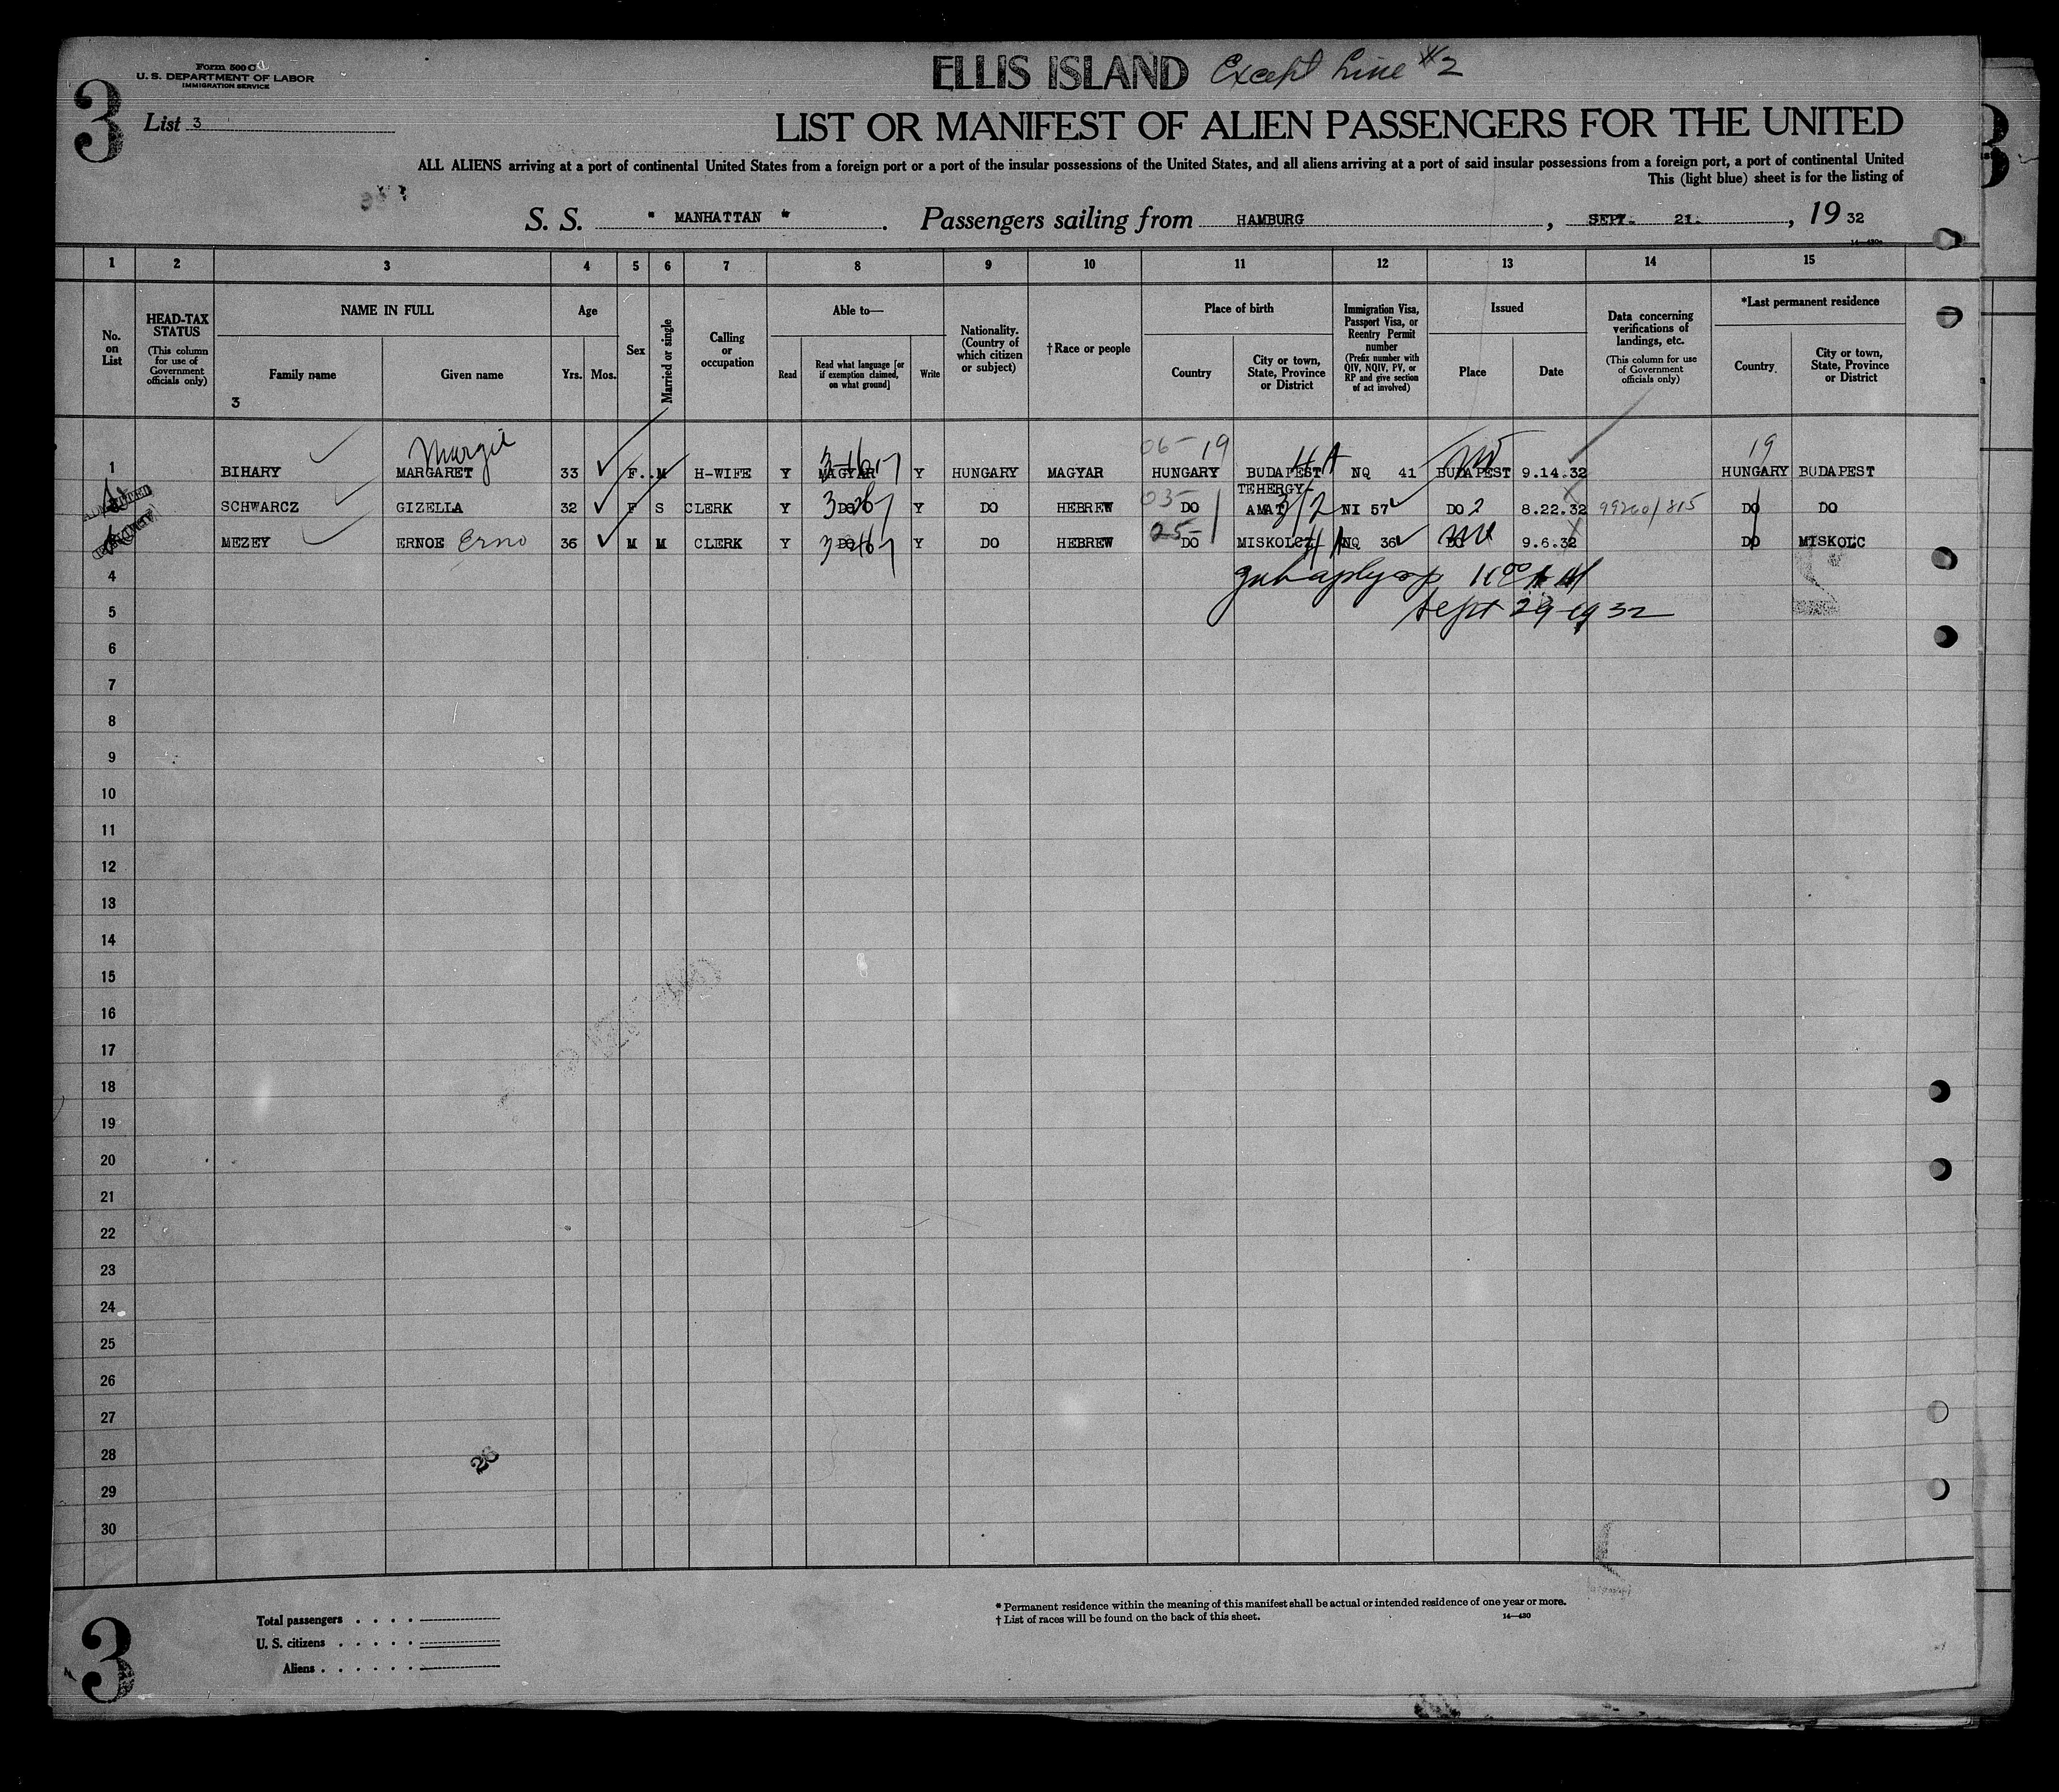 Form 500 C
U. S. DEPARTMENT OF LABOR
IMMIGRATION SERVICE
3
List 3
ELLIS ISLAND Except Line #2
LIST OR MANIFEST OF ALIEN PASSENGERS FOR THE UNITED
ALL ALIENS arriving at a port of continental United States from a foreign port or a port of the insular possessions of the United States, and all aliens arriving at a port of said insular possessions from a foreign port, a port of continental United
This (light blue) sheet is for the listing of
S. S. " MANHATTAN " . Passengers sailing from HAMBURG , SEPT. 21. , 19 32
1 2 3 4 5 6 7 8 9 10 11 12 13 14 15
No. on List
HEAD-TAX STATUS
(This column for use of Government officials only)
NAME IN FULL
Family name
Given name
3
Age
Yrs. Mos.
Sex
Married or single
Calling or occupation
Able to—
Read
Read what language [or if exemption claimed, on what ground]
Write
Nationality. (Country of which citizen or subject)
† Race or people
Place of birth
Country
City or town, State, Province or District
Immigration Visa, Passport Visa, or Reentry Permit number
(Prefix number with QIV, NQIV, PV, or RP and give section of act involved)
Issued
Place
Date
Data concerning verifications of landings, etc.
(This column for use of Government officials only)
*Last permanent residence
Country
City or town, State, Province or District
Margit
06- 19
19
1 BIHARY MARGARET 33 F. M H-WIFE Y MAGYAR Y HUNGARY MAGYAR HUNGARY BUDAPEST NQ 41 BUDAPEST 9.14.32 HUNGARY BUDAPEST
TEHERGY-
SCHWARCZ GIZELLA 32 F S CLERK Y DO Y DO HEBREW DO AMAT NI 57 DO 2 8.22.32 99260/815 DO DO
MEZEY ERNOE Erno 36 M M CLERK Y DO Y DO HEBREW DO MISKOLCZ NQ 36 DO 9.6.32 DO MISKOLC
4
5 Sept 29-1932
6
7
8
9
10
11
12
13
14
15
16
17
18
19
20
21
22
23
24
25
26
27
28
26
29
30
Total passengers . . . .
U. S. citizens . . . . .
Aliens . . . . . .
* Permanent residence within the meaning of this manifest shall be actual or intended residence of one year or more.
† List of races will be found on the back of this sheet. 14—430
3